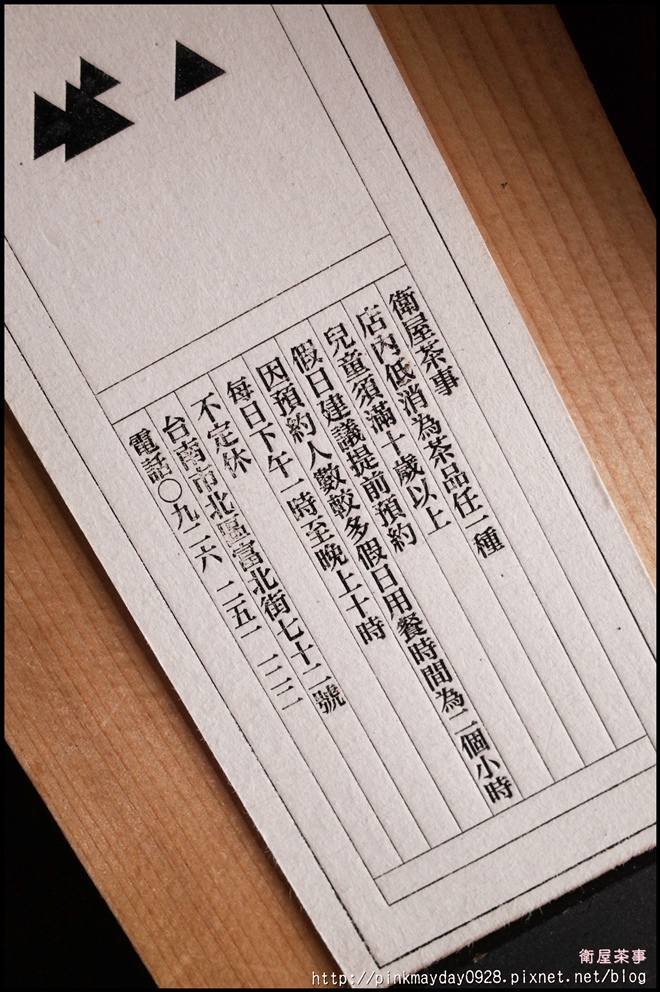 衛屋茶事
店內低消為茶品任一種
兒童須滿十歲以上
假日建議提前預約
因預約人數較多假日用餐時間為二個小時
每日下午一時至晚上十時
不定休
台南市北區富北街七十二號
電話〇九二六 二五一 一二二
衛屋茶事
http://pinkmayday0928.pixnet.net/blog